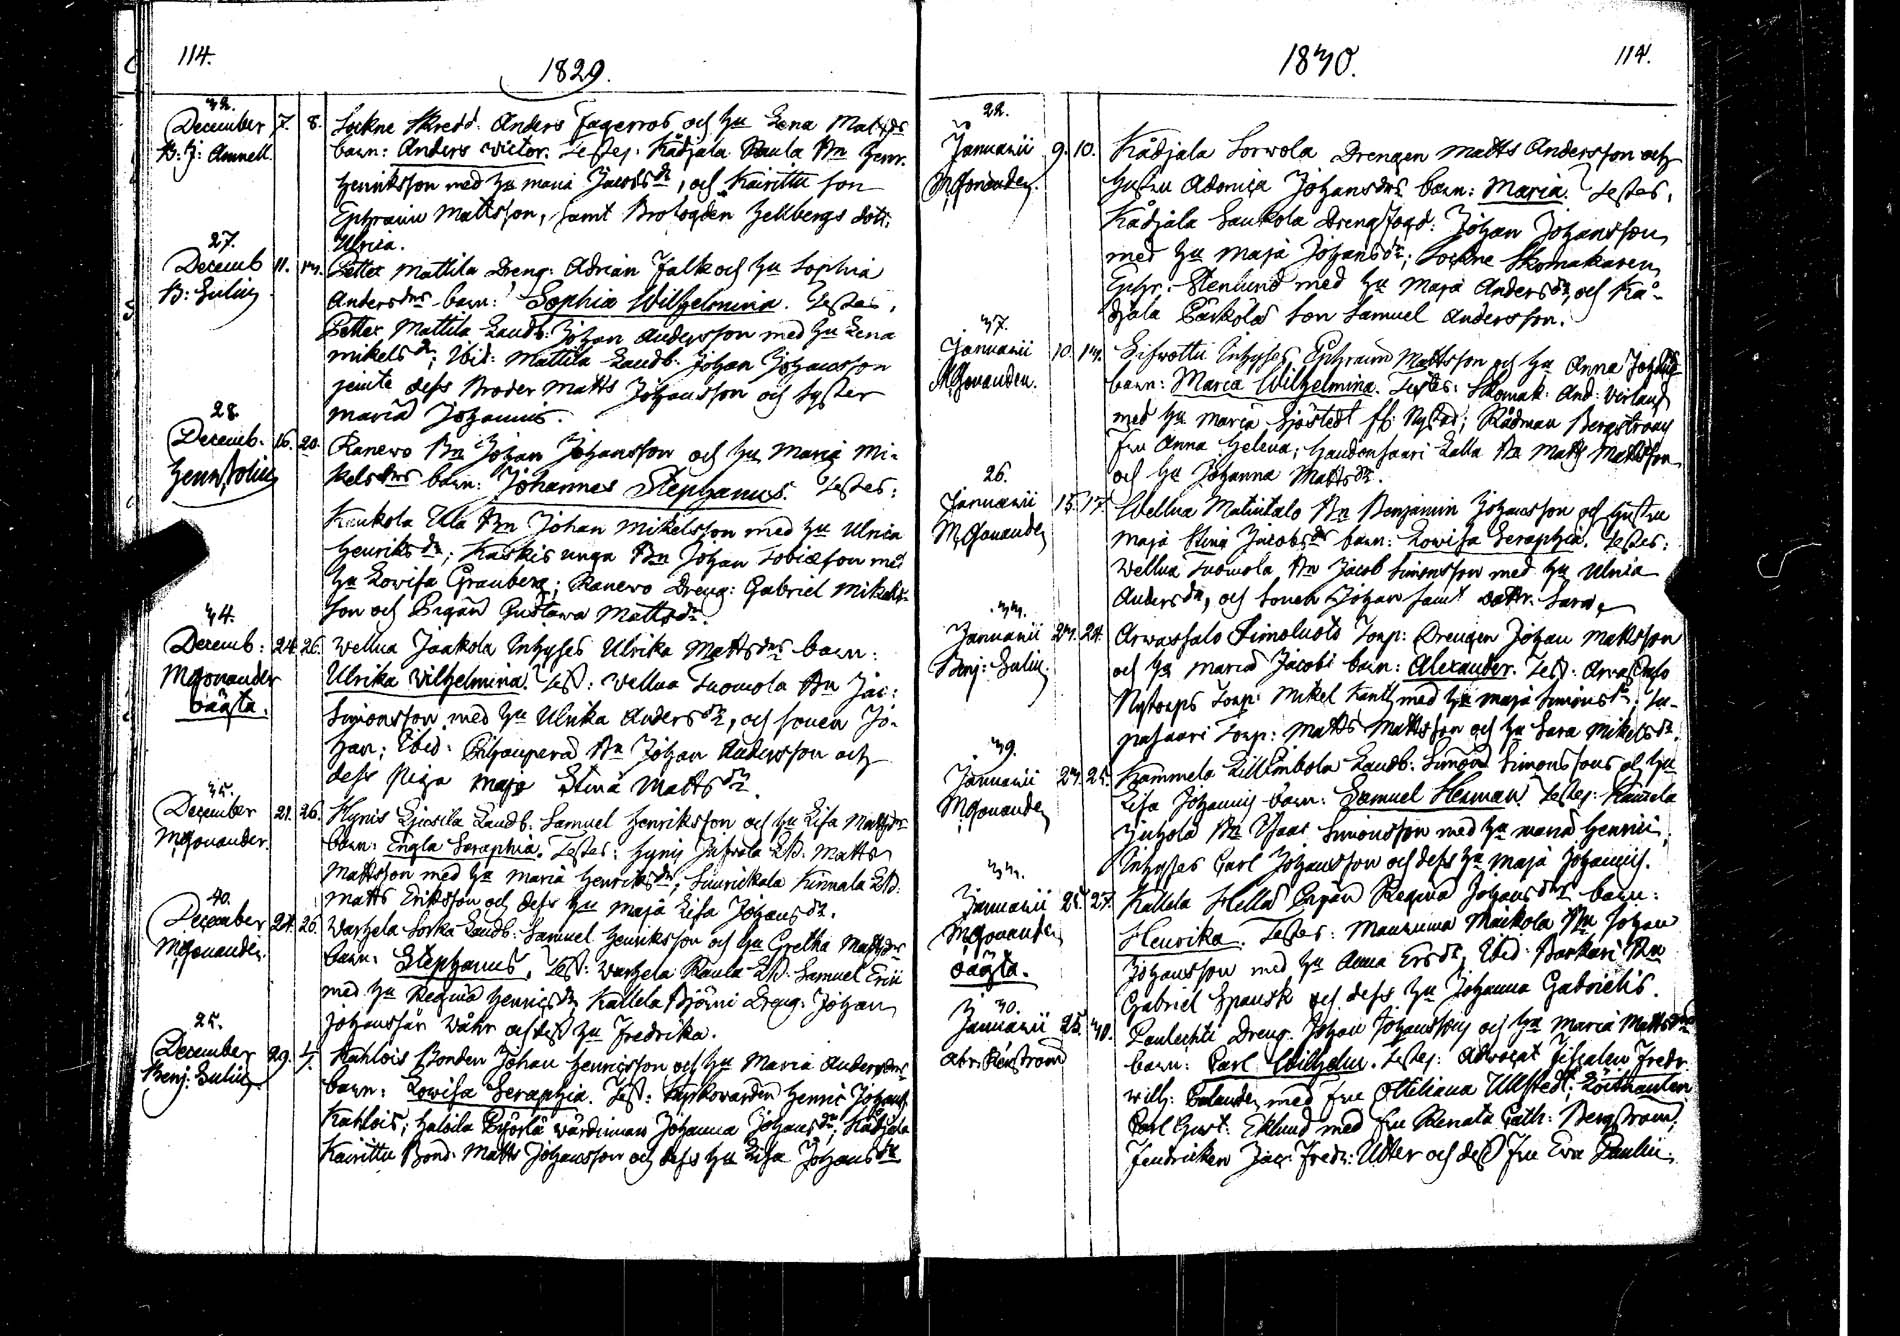 114.
1829.
32.
December 7. 8. Lockne Skredd. Anders Fagerros och Hu Lena Matsdrs
B: J: Amnell. barn: Anders Victor. Testes. Kådjala Paula Bn Henr.
Henriksson med Hu Maria Jacobsdr, och Kairittu son
Ephraim Mattsson, samt Brofogden Hellbergs dotr.
Ulrica.
27.
Decemb 11. 13. Petter Mattila Dreng. Adrian Falk och Hu Sophia
B: Julin Andersdrs barn: Sophia Wilhelmina. Testes,
Petter Mattila Landb. Johan Andersson med Hu Lena
Mikelsdr; Ibid: Mattila Landb. Johan Johansson
jemte dess Broder Matts Johansson och Syster
Maria Johannis.
28.
Decemb. 16. 20. Ranewo Bn Johan Johansson och Hu Maria Mi-
Benj. Julin kelsdrs barn: Johannes Stephanus. Testes:
Kaukola Ula Bn Johan Mikelsson med Hu Ulrica
Henriksdr; Kaskis unga Bn Johan Tobiæson med
Hu Lowisa Granberg; Ranewo Dreng: Gabriel Mikels-
son och Pigan Gustava Mattsdr.
34.
Decemb: 24. 26. Wellua Jaakola Inhyses Ulrika Mattsdrs barn:
M. Gonander Ulrika Wilhelmina. Test: Wellua Tuomola Bn Jac:
oägta. Simonsson med Hu Ulrika Andersdr, och sonen Jo-
han; Ibid: Bn Johan Andersson och
dess Piga Maja Stina Mattsdr.
35.
December 21. 26. Hynis Landb. Samuel Henriksson och Hu Lisa Mattsdrs
M. Gonander. barn: Engla Seraphia. Testes: Hynis Lb. Matts
Mattsson med Hu Maria Henriksdr; Suurikkala Kinnala Lb.
Matts Eriksson och dess Hu Maja Lisa Johansdr.
40.
December 24. 26. Warhela Sorka Landb: Samuel Henriksson och Hu Gretha Mattsdrs
M. Gonander. barn: Stephanus. Test: Warhela Raula Lb. Samuel Erici
med Hu Regina Henricsdr Kallela Björni Dreng: Johan
Johansson och dess Hu Fredrika.
25.
December 29. 4. Kahlois Bonden Johan Henricsson och Hu Maria Andersdrs
Benj. Julin barn: Lowisa Seraphia. Test: Kyrkowärden Henric Johans
Kahlois; Halsila wärdinnan Johanna Johansdr, Kådjala
Kairittu Bond. Matts Johansson och dess Hu Lisa Johansdr
1830.
114.
22.
Januarii 9. 10. Kådjala Sorwola Drengen Matts Andersson och
M. Gonander. Hustru Adamia Johansdrs barn: Maria. Testes,
Kådjala Saukola Drengfogd. Johan Johansson
med Hu Maja Johansdr; Lockne Skomakaren
Ephr. Stenlund med Hu Maja Andersdr, och Kå-
djala Parkola Son Samuel Andersson.
37.
Januarii 10. 13. Inhyses Ephraim Mattsson och Hu Anna Johansdrs
M. Gonander. barn: Maria Wilhelmina. Testes: Skomak. And: Werlund
med Hu Maria Sjöstedt fr. Nystad; Rådman Bergström
Fru Anna Helena; Haudonsaari Lalla Bn Matts Mattsson
och Hu Johanna Mattsdr.
26.
Januarii 15. 17. Wellua Matintalo Bn Benjamin Johansson och Hustru
M. Gonander Maja Stina Jacobsdrs barn: Lowisa Seraphia. Testes:
Wellua Tuomola Bn Jacob Simonsson med Hu Ulrica
Andersdr, och sonen Johan samt dottr. Sara.
33.
Januarii 23. 24. Arwassalo Simoluoto Torp: Drengen Johan Mattsson
Benj: Julin och Hu Maria Jacobi barn: Alexander. Test. Arwassalo
Nystorps Torp: Mikel Kantz med Hu Maja Simonsdr; Lu-
pasaari Torp: Matts Mattsson och Hu Sara Mikelsdr.
39.
Januarii 23. 25. Kammela Landb. Simon Simonssons och Hu
M. Gonander Lisa Johannis barn: Samuel Herman. Testes. Kamela
Juhola Bn Isaac Simonsson med Hu Maria Henrici;
Inhyses Carl Johansson och dess Hu Maja Johannis.
33.
Januarii 25. 27. Kallela Hella Pigan Regina Johansdrs barn:
M. Gonander Henrika. Testes: Maunuma Markola Bn Johan
oägta. Johansson med Hu Anna Ersdr, Ibid. Barkari Bn
Gabriel Spansk och dess Hu Johanna Gabrielis.
30.
Januarii 25. 30. Paulechti Dreng. Johan Johansson och Hu Maria Mattsdrs
Abr. Renström barn: Carl Wilhelm. Testes: Advocat Fiscalen Fredr.
Wilh: Polander med Fru Ottiliana Ullstedt; Löitnanten
Carl Gust: Eklund med Fru Renata Cath: Bergström;
Fendricken Jac. Fredr: Utter och dess Fru Eva Paulin.